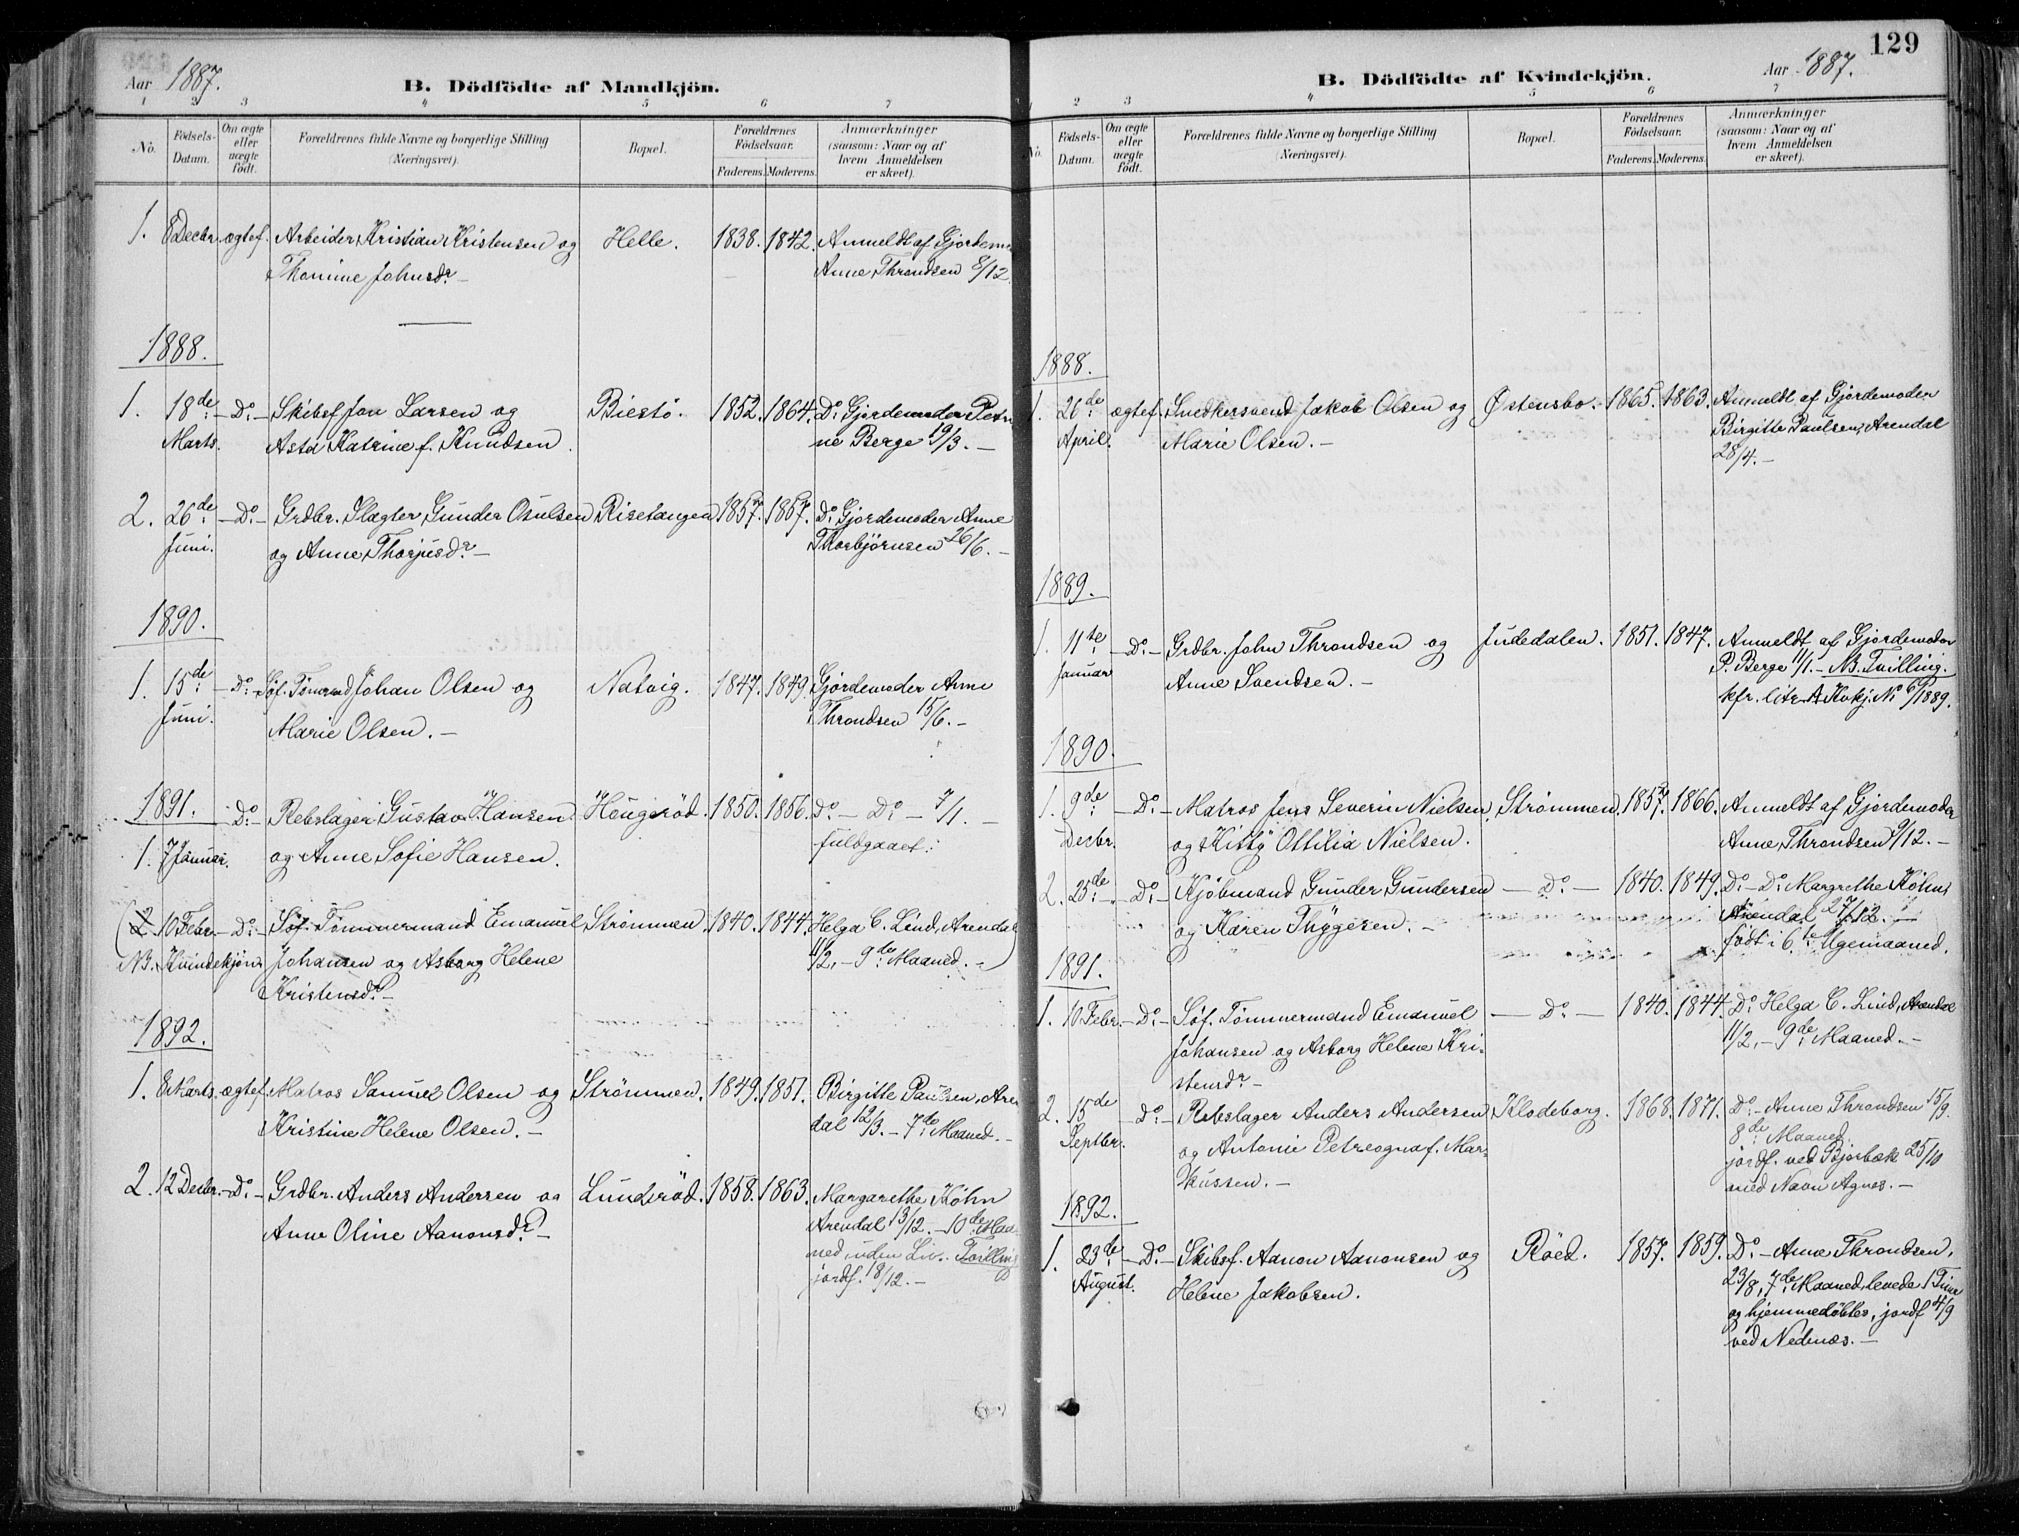 Aar 1887.
B. Dödfödte af Mandkjön.
1 2 3 4 5 6 7
No.
Födsels-
Datum.
Om ægte
eller
uægte
födt.
Forældrenes fulde Navne og borgerlige Stilling
(Næringsvei).
Bopæl.
Forældrenes
Födselsaar.
Faderens. Moderens.
Anmærkninger
(saasom: Naar og af
hvem Anmeldelsen
er skeet).
1. 8 Decbr. ægtef. Arbeider Kristian Kristensen og Helle. 1838. 1842. Anmeldt af Gjordem.
Thomine Johnsdr. Anne Throndsen 8/12.
1888.
1. 18de – Do – Skibsf. Jon Larsen og Biestö. 1852. 1864. Do Gjordemoder Petri
Marts. Asta Katrine f. Knudsen. ne Berge 19/3. –
2. 26de – Do – Grdbr. Slagter Gunder Osulsen Risetangen 1857. 1867. Do Gjordemoder Anne
Juni. og Anne Thorjusdr. – Thorbjørnsen 26/6. –
1890.
1. 15de – Do – Søf. Tømrmd Johan Olsen og Natvig. 1847. 1849. Gjordemoder Anne
Juni. Marie Olsen. – Throndsen 15/6. –
1891. Do – Rebslager Gustav Hansen Hougerød. 1850. 1856. Do – Do – 7/1. –
1. 7 Januar. og Anne Sofie Hansen. fuldgaaet.
(2 10 Febr. – Do – Søf. Tømmermand Emanuel Strømmen. 1840. 1844. Helga C. Lind, Arendal
NB. Kvindekjøn. Johansen og Asborg Helene 11/2, – 9de Maaned. –)
Kristensdr. –
1892.
1. 8 Marts. ægtef. Matros Samuel Olsen og Strømmen. 1849. 1851. Birgitte Paulsen, Aren
Kristine Helene Olsen. – dal 12/3. – 7de Maaned. –
2. 12 Decbr. – Do – Grdbr. Anders Andersen og Lunderød. 1858. 1863. Margarethe Köhn
Anne Oline Aanonsdr. – Arendal 13/12. – 10de Maa
ned, uden Liv. Tvilling
jordf. 18/12. –
129
B. Dödfödte af Kvindekjön.
Aar 1887.
1 2 3 4 5 6 7
No.
Födsels-
Datum.
Om ægte
eller
uægte
födt.
Forældrenes fulde Navne og borgerlige Stilling
(Næringsvei).
Bopæl.
Forældrenes
Födselsaar.
Faderens. Moderens.
Anmærkninger
(saasom: Naar og af
hvem Anmeldelsen
er skeet).
1888.
1. 26de ægtef. Snedkersvend Jakob Olsen og Østensbo. 1865. 1863. Anmeldt af Gjordemoder
April. Marie Olsen. – Birgitte Paulsen, Arendal
28/4. –
1889.
1. 11te – Do – Grdbr. John Throndsen og Judedalen. 1851. 1847. Anmeldt af Gjordemoder
Januar Anne Svendsen. – P. Berge 11/1. – NB. Tvilling.
kfr. litr. A Kvkj. No 6/1889.
1890.
1. 9de – Do – Matros Jens Severin Nielsen Strømmen. 1857. 1866. Anmeldt af Gjordemoder
Decbr. og Kitty Ottilia Nielsen. Anne Throndsen 9/12. –
2. 25de – Do – Kjøbmand Gunder Gundersen – Do – 1840. 1849. Do – Do Margrethe Köhn,
og Karen Thygesen. – Arendal 27/12. –
født i 6te Ugemaaned.
1891.
1. 10 Febr. – Do – Søf. Tømmermand Emanuel – Do – 1840. 1844. Do Helga C. Lind, Arendal
Johansen og Asborg Helene Kri- 11/2, – 9de Maaned. –
stensdr. –
2. 15de – Do – Rebslager Anders Andersen Klodeborg. 1868. 1871. Do – Anne Throndsen 15/9.
Septbr. og Antonie Petrea f. Mar- 8de Maaned
kussen. – jordf. ved Bjorbæk 25/10
med Navn Agnes. –
1892.
1. 23de – Do – Skibsf. Aanon Aanonsen og Röed. 1857. 1859. Do – Anne Throndsen,
August. Helene Jakobsen. 23/8, 7de Maaned, levede 1 Time
og hjemmedöbtes, jordf 4/9
ved Nedenæs. –